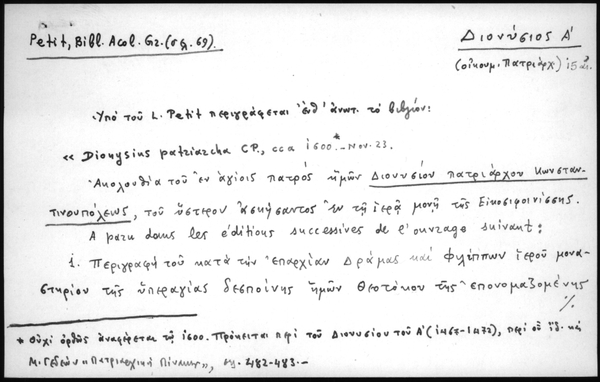 Petit, Bibl. Acol. Gr. (σελ. 69). Διονύσιος Α'
(οἰκουμ. Πατριάρχ.)
Ὑπό τοῦ L. Petit περιγράφεται ἐνθ' ἀνωτ. τό βιβλίον:
« Dionysius patriarcha CP., cca 1600.*- Nov. 23.
Ἀκολουθία τοῦ ἐν ἁγίοις πατρός ἡμῶν Διονυσίου πατριάρχου Κωνσταν-
τινουπόλεως, τοῦ ὕστερον ἀσκήσαντος ἐν τῇ ἱερᾷ μονῇ τῆς Εἰκοσιφοινίσσης.
A paru dans les éditions successives de l'ouvrage suivant:
1. Περιγραφή τοῦ κατά τήν ἐπαρχίαν Δράμας καί Φιλίππων ἱεροῦ μονα-
στηρίου τῆς ὑπεραγίας δεσποίνης ἡμῶν Θεοτόκου τῆς ἐπονομαζομένης
%.
* Οὐχί ὀρθῶς ἀναφέρεται τῷ 1600. Πρόκειται περί τοῦ Διονυσίου τοῦ Α' (1467-1472), περί οὗ ἰδ. καί
Μ. Γεδεών «Πατριαρχικοί Πίνακες», σελ. 482-483.-